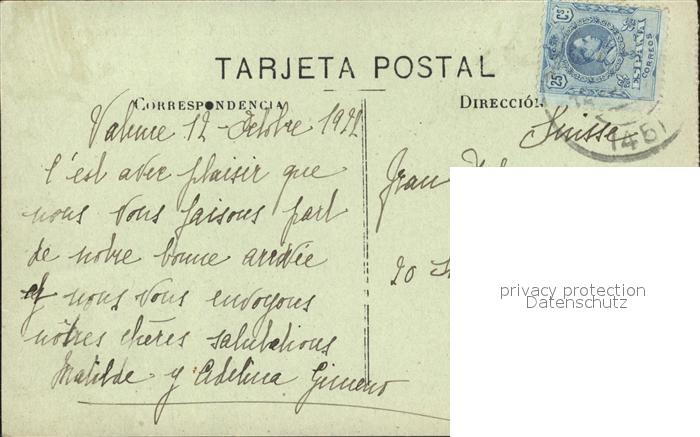 25 Cs
ESPAÑA
CORREOS
TARJETA POSTAL
CORRESPONDENCIA
DIRECCIÓN
Valence 12 - Octobre 1922
Suisse
1451
C'est avec plaisir que
nous vous faisons part
de notre bonne arrivée
et nous vous envoyons
nôtres chères salutations
Matilde y Adelina Gimeno
Jean
20
privacy protection
Datenschutz